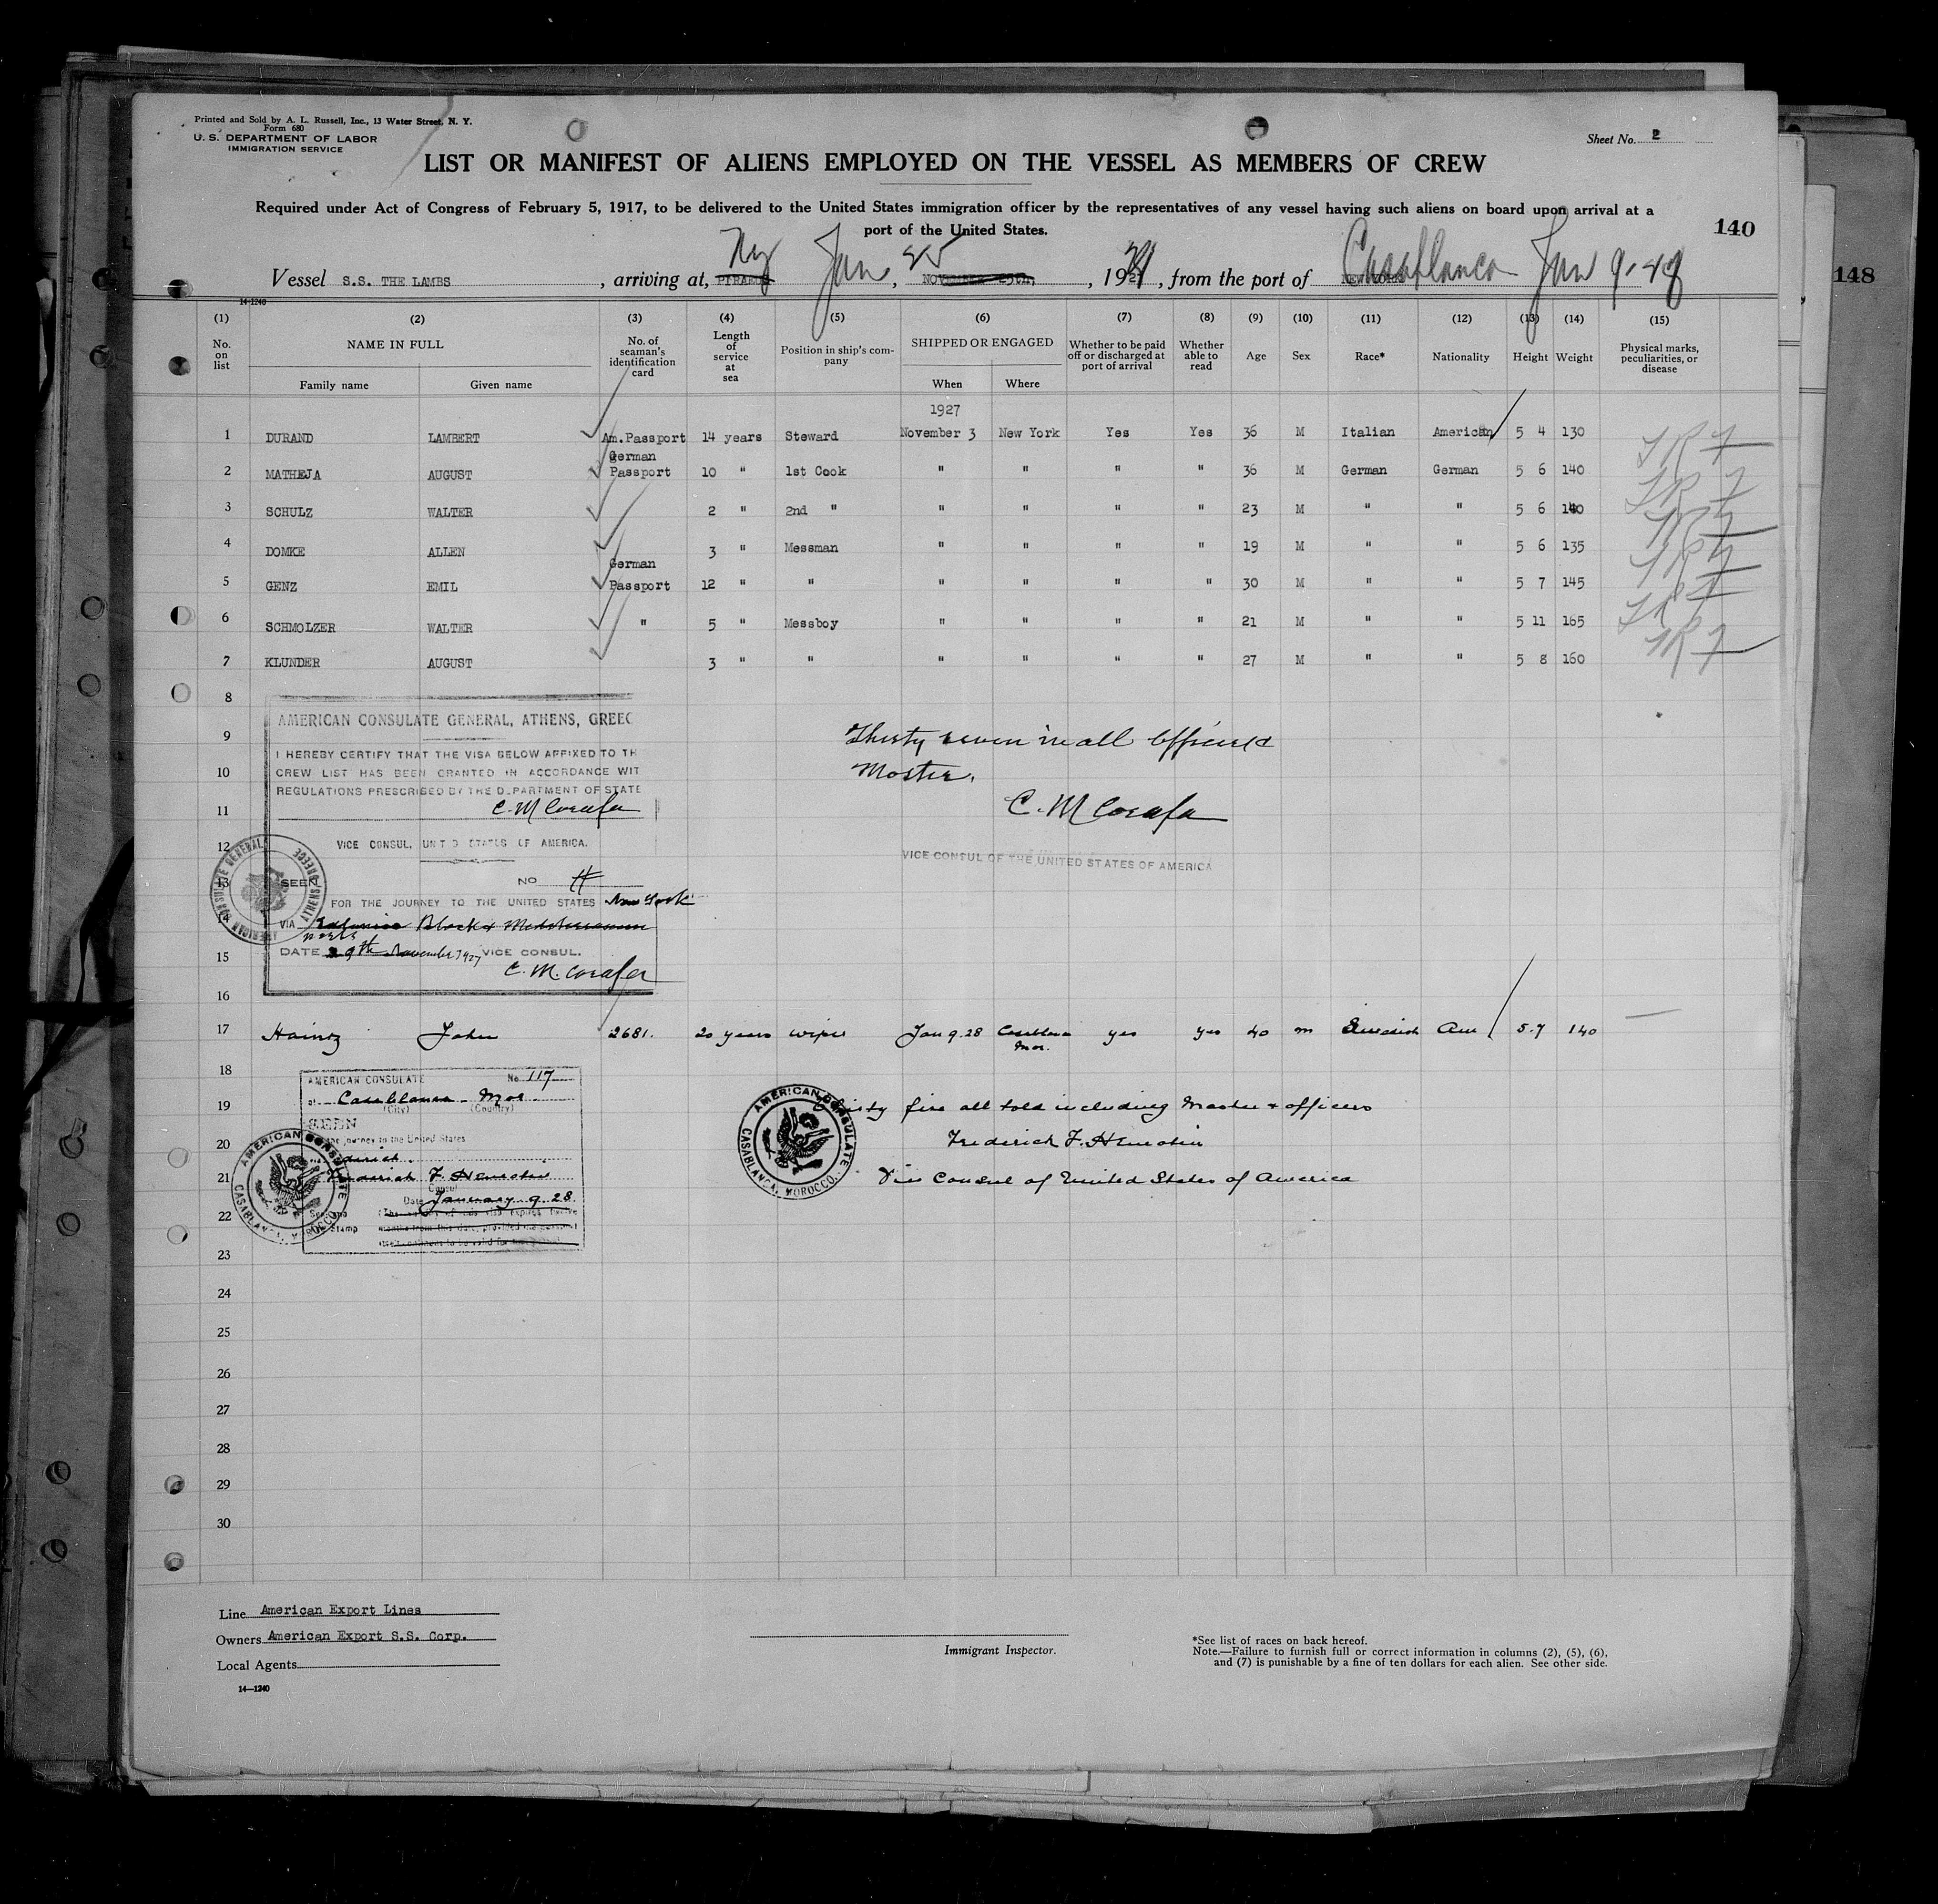 Printed and Sold by A. L. Russell, Inc., 13 Water Street, N. Y.
Form 680
U. S. DEPARTMENT OF LABOR
IMMIGRATION SERVICE
Sheet No. 2
LIST OR MANIFEST OF ALIENS EMPLOYED ON THE VESSEL AS MEMBERS OF CREW
Required under Act of Congress of February 5, 1917, to be delivered to the United States immigration officer by the representatives of any vessel having such aliens on board upon arrival at a
port of the United States.
140
148
Vessel S.S. THE LAMBS, arriving at, PIRAEUS Ny Jan, 25 NOVEMBER 25th, 19, from the port of Casablanca Jan 9-28
14-1240
(1) (2) (3) (4) (5) (6) (7) (8) (9) (10) (11) (12) (13) (14) (15)
No. on list NAME IN FULL No. of seaman's identification card Length of service at sea Position in ship's company SHIPPED OR ENGAGED Whether to be paid off or discharged at port of arrival Whether able to read Age Sex Race* Nationality Height Weight Physical marks, peculiarities, or disease
Family name Given name When Where
1927
1 DURAND LAMBERT Am.Passport 14 years Steward November 3 New York Yes Yes 36 M Italian American 5 4 130
German
2 MATHEJA AUGUST Passport 10 " 1st Cook " " " " 36 M German German 5 6 140
3 SCHULZ WALTER 2 " 2nd " " " " " 23 M " " 5 6 140
4 DOMKE ALLEN 3 " Messman " " " " 19 M " " 5 6 135
German
5 GENZ EMIL Passport 12 " " " " " " 30 M " " 5 7 145
6 SCHMOLZER WALTER " 5 " Messboy " " " " 21 M " " 5 11 165
7 KLUNDER AUGUST 3 " " " " " " 27 M " " 5 8 160
8
AMERICAN CONSULATE GENERAL, ATHENS, GREEC
9 Thirty seven in all Officers &
I HEREBY CERTIFY THAT THE VISA BELOW AFFIXED TO TH
10 Master.
CREW LIST HAS BEEN GRANTED IN ACCORDANCE WIT
REGULATIONS PRESCRIBED BY THE DEPARTMENT OF STATE
11 C. M Corafa C. M Corafa
12 VICE CONSUL, UNITED STATES OF AMERICA.
VICE CONSUL OF THE UNITED STATES OF AMERICA
13 SEEN NO
FOR THE JOURNEY TO THE UNITED STATES New York
14 VIA Black & Mediterranean
ports
15 DATE 29th November 1927 VICE CONSUL.
C. M. Corafa
16
17 Haintz John 2681. 20 years wiper Jan 9.28 Casablanca Mor. yes yes 40 m Swedish Am 5.7 140
18
AMERICAN CONSULATE No. 117
19 at Casablanca Mor.
(City) (Country)
SEEN
20 the journey to the United States
21 Frederick F. Henrotin
Consul
Date January 9.28.
22 Stamp
AMERICAN CONSULATE
CASABLANCA, MOROCCO.
AMERICAN CONSULATE
CASABLANCA, MOROCCO.
Thirty five all told including Master & officers
Frederick F. Henrotin
Vice Consul of United States of America
23
24
25
26
27
28
29
30
Line American Export Lines
Owners American Export S.S. Corp.
Local Agents
14—1240
Immigrant Inspector.
*See list of races on back hereof.
Note.—Failure to furnish full or correct information in columns (2), (5), (6),
and (7) is punishable by a fine of ten dollars for each alien. See other side.